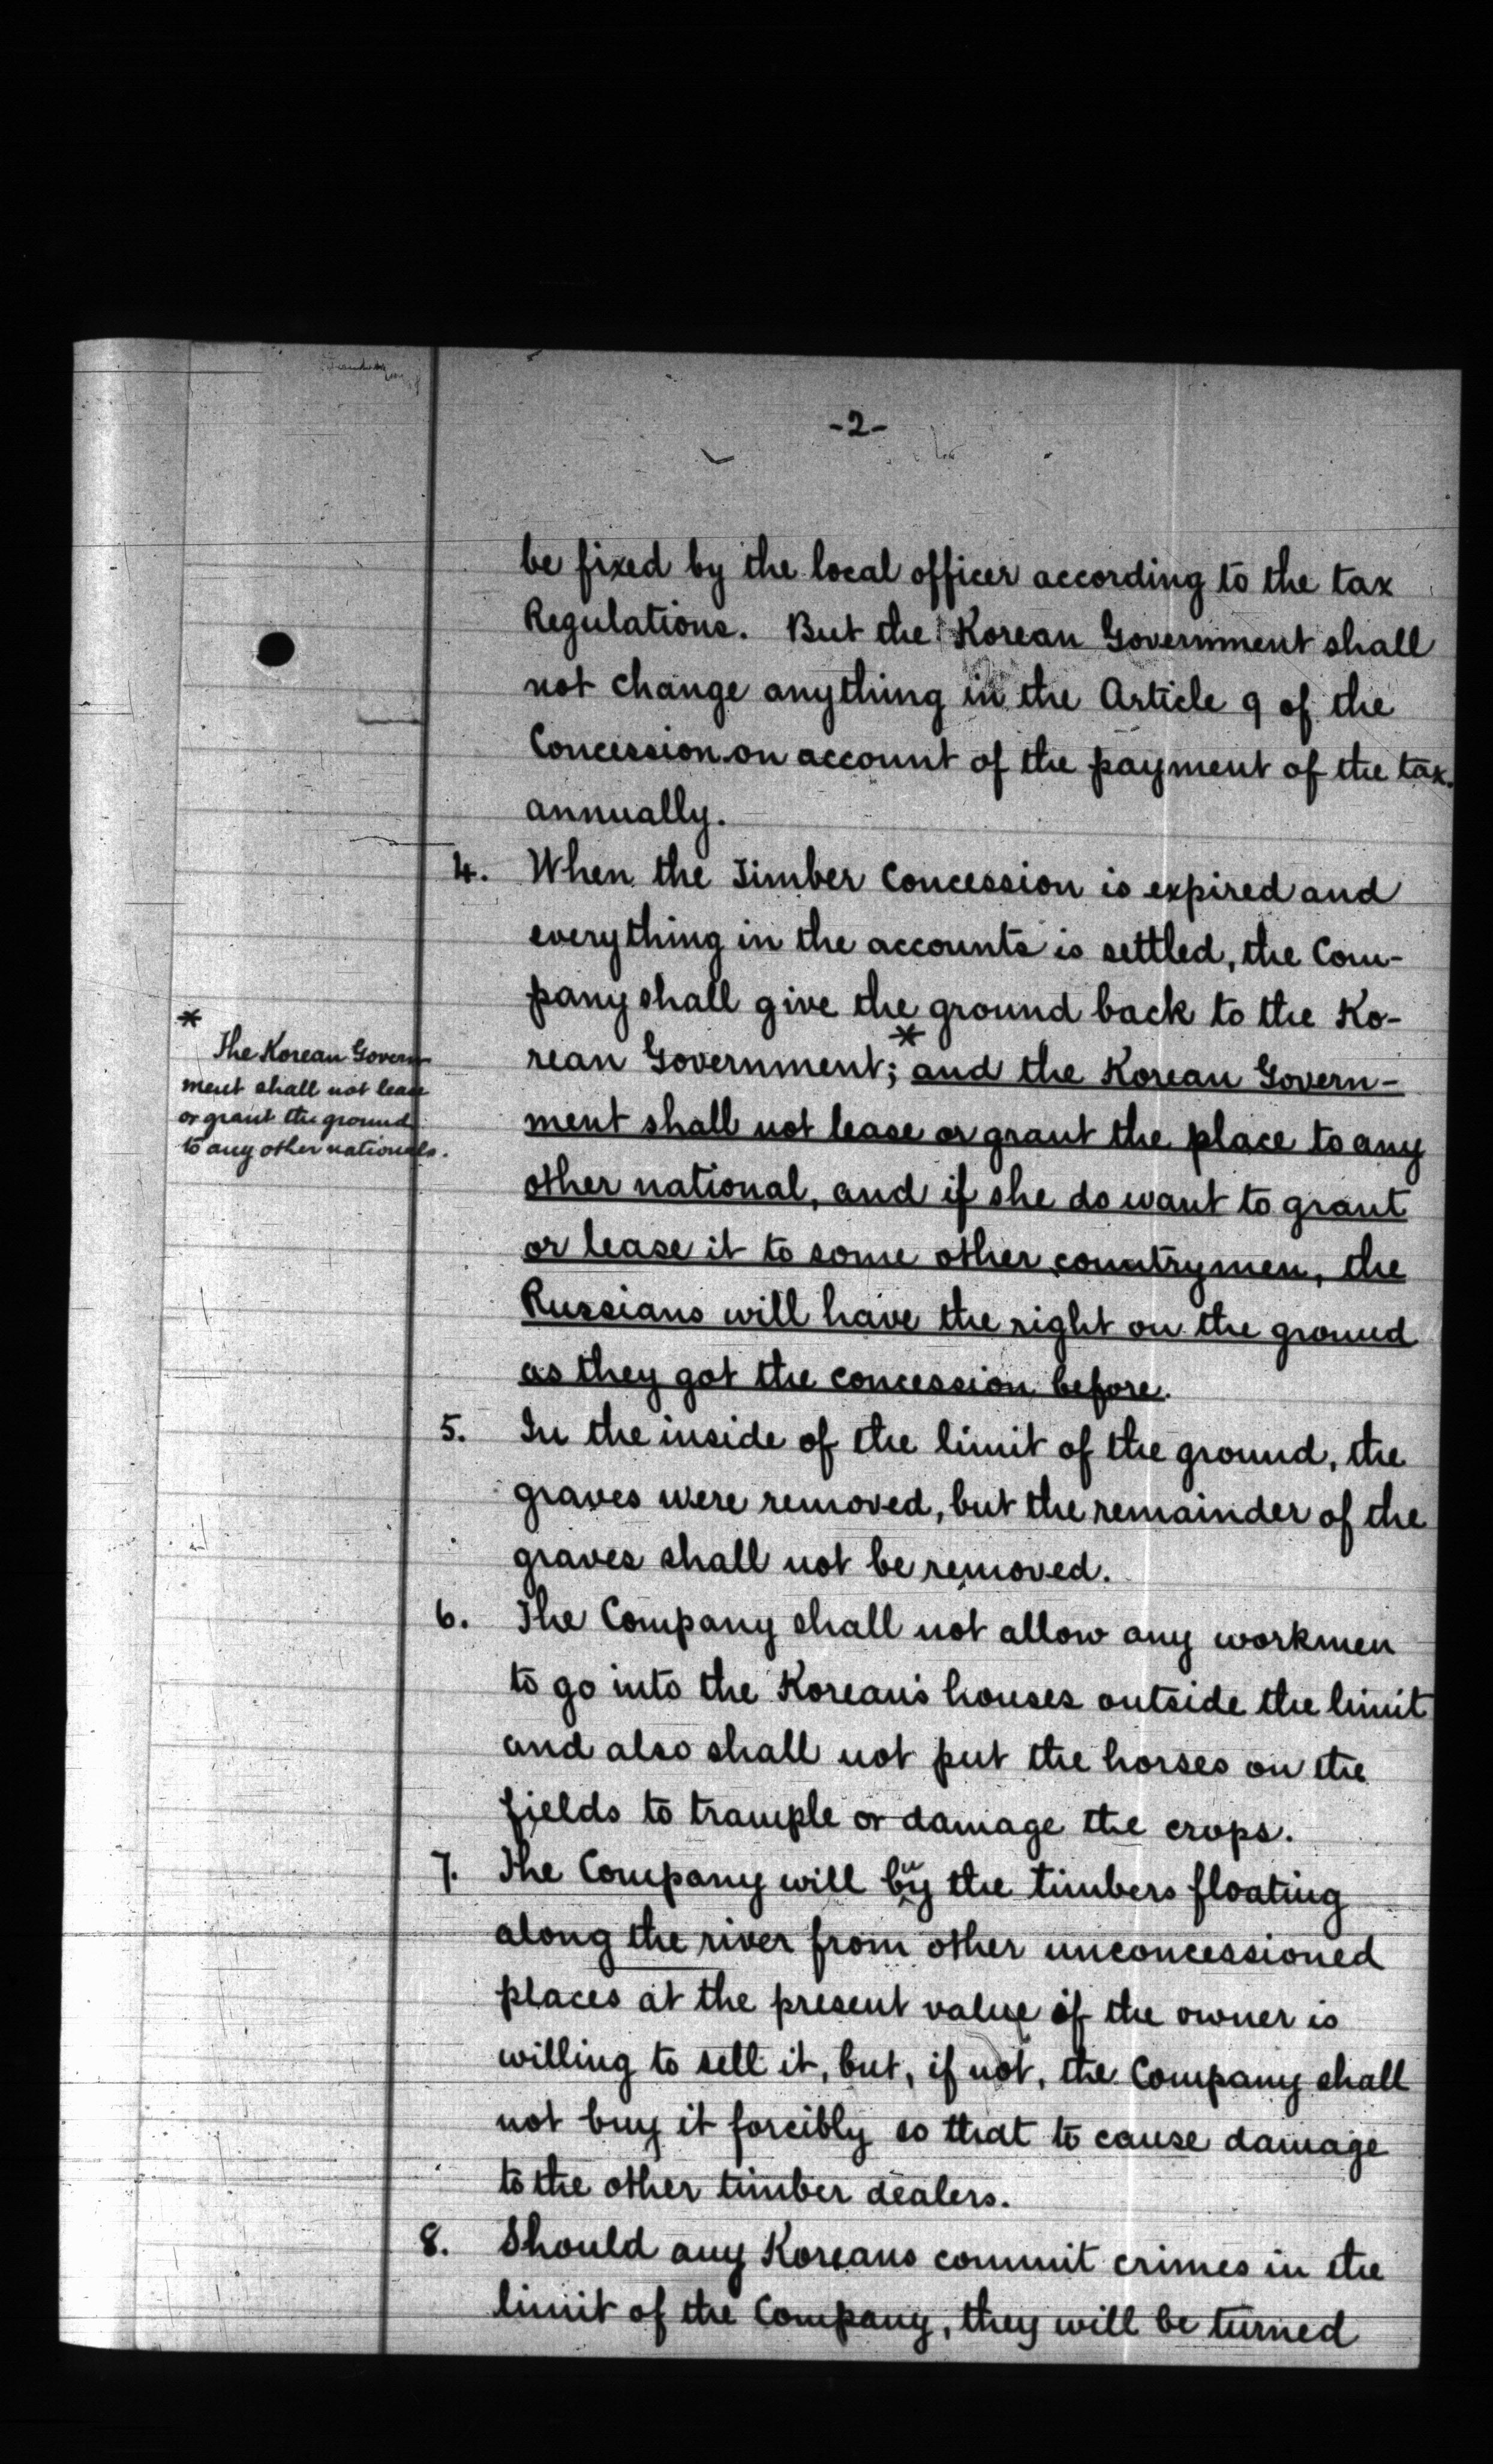 -2-
be fixed by the local officer according to the tax
Regulations. But the Korean Government shall
not change anything in the Article 9 of the
Concession on account of the payment of the tax
annually.
4. When the Timber Concession is expired and
everything in the accounts is settled, the Com-
pany shall give the ground back to the Ko-
rean Government;* and the Korean Govern-
ment shall not lease or grant the place to any
other national, and if she do want to grant
or lease it to some other countrymen, the
Russians will have the right on the ground
as they got the concession before.
*
The Korean Govern-
ment shall not lease
or grant the ground
to any other nationals.
5. In the inside of the limit of the ground, the
graves were removed, but the remainder of the
graves shall not be removed.
6. The Company shall not allow any workmen
to go into the Korean's houses outside the limit
and also shall not put the horses on the
fields to trample or damage the crops.
7. The Company will buy the timbers floating
along the river from other unconcessioned
places at the present value if the owner is
willing to sell it, but, if not, the Company shall
not buy it forcibly so that to cause damage
to the other timber dealers.
8. Should any Koreans commit crimes in the
limit of the Company, they will be turned